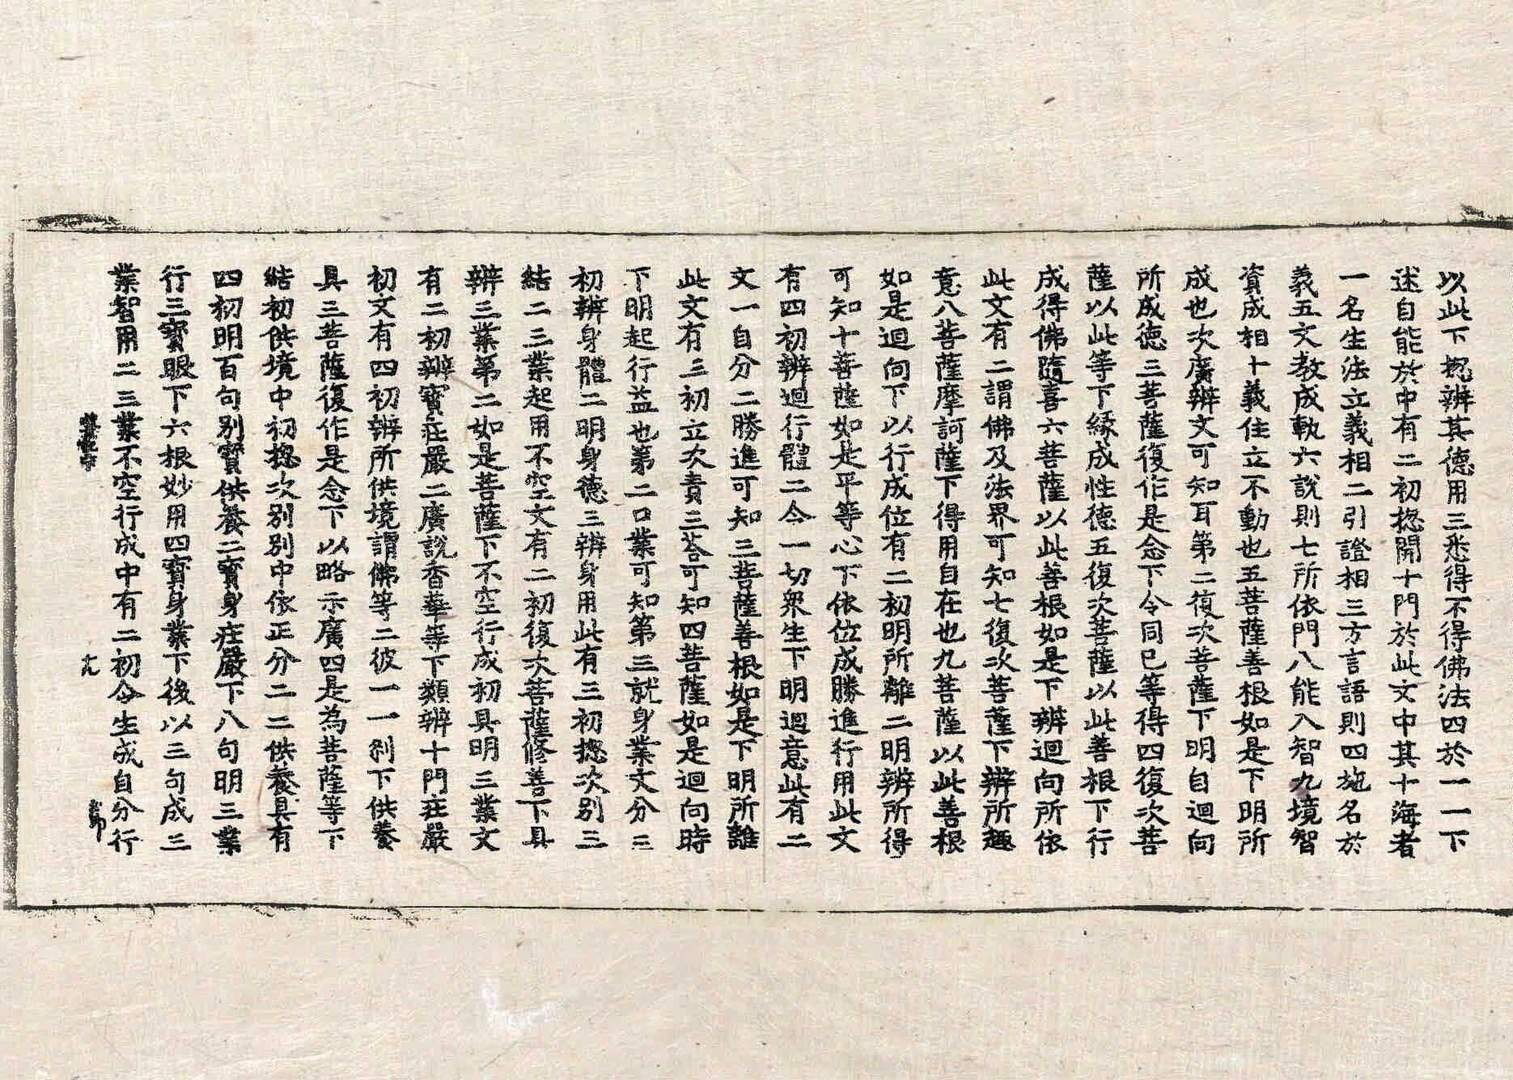 以此下惣辨其德用三悉得不得佛法四於一一下
迷自能於中有二初惣開十門於此文中其十海者
一名生法立義相二引證相三方言語則四施名於
義五文教成軌六說則七所依門八能入智九境智
資成相十義住立不動也五菩薩善根如是下明所
成也次廣辨文可知耳第二復次菩薩下明自迴向
所成德三菩薩復作是念下令同已等得四復次菩
薩以此等下緣成性德五復次菩薩以此善根下行
成得佛隨喜六菩薩以此善根如是下辨迴向所依
此文有二謂佛及法界可知七復次菩薩下辨所趣
意八菩薩摩訶薩下得用自在也九菩薩以此善根
如是迴向下以行成位有二初明所離二明辨所得
可知十菩薩如是平等心下依位成勝進行用此文
有四初辨迴行體二令一切衆生下明迴意此有二
文一自分二勝進可知三菩薩善根如是下明所離
此文有三初立次責三荅可知四菩薩如是迴向時
下明起行益也第二口業可知第三就身業文分三
初辨身體二明身德三辨身用此有三初惣次別三
結二三業起用不空文有二初復次菩薩修善下具
辨三業第二如是菩薩下不空行成初具明三業文
有二初辨寳莊嚴二廣說香華等下類辨十門莊嚴
初文有四初辨所供境謂佛等二彼一一刹下供養
具三菩薩復作是念下以略示廣四是為菩薩等下
結初供境中初惣次別別中依正分二二供養具有
四初明百句別寳供養二寳身莊嚴下八句明三業
行三寳眼下六根妙用四寳身業下後以三句成三
業智用二三業不空行成中有二初令生成自分行